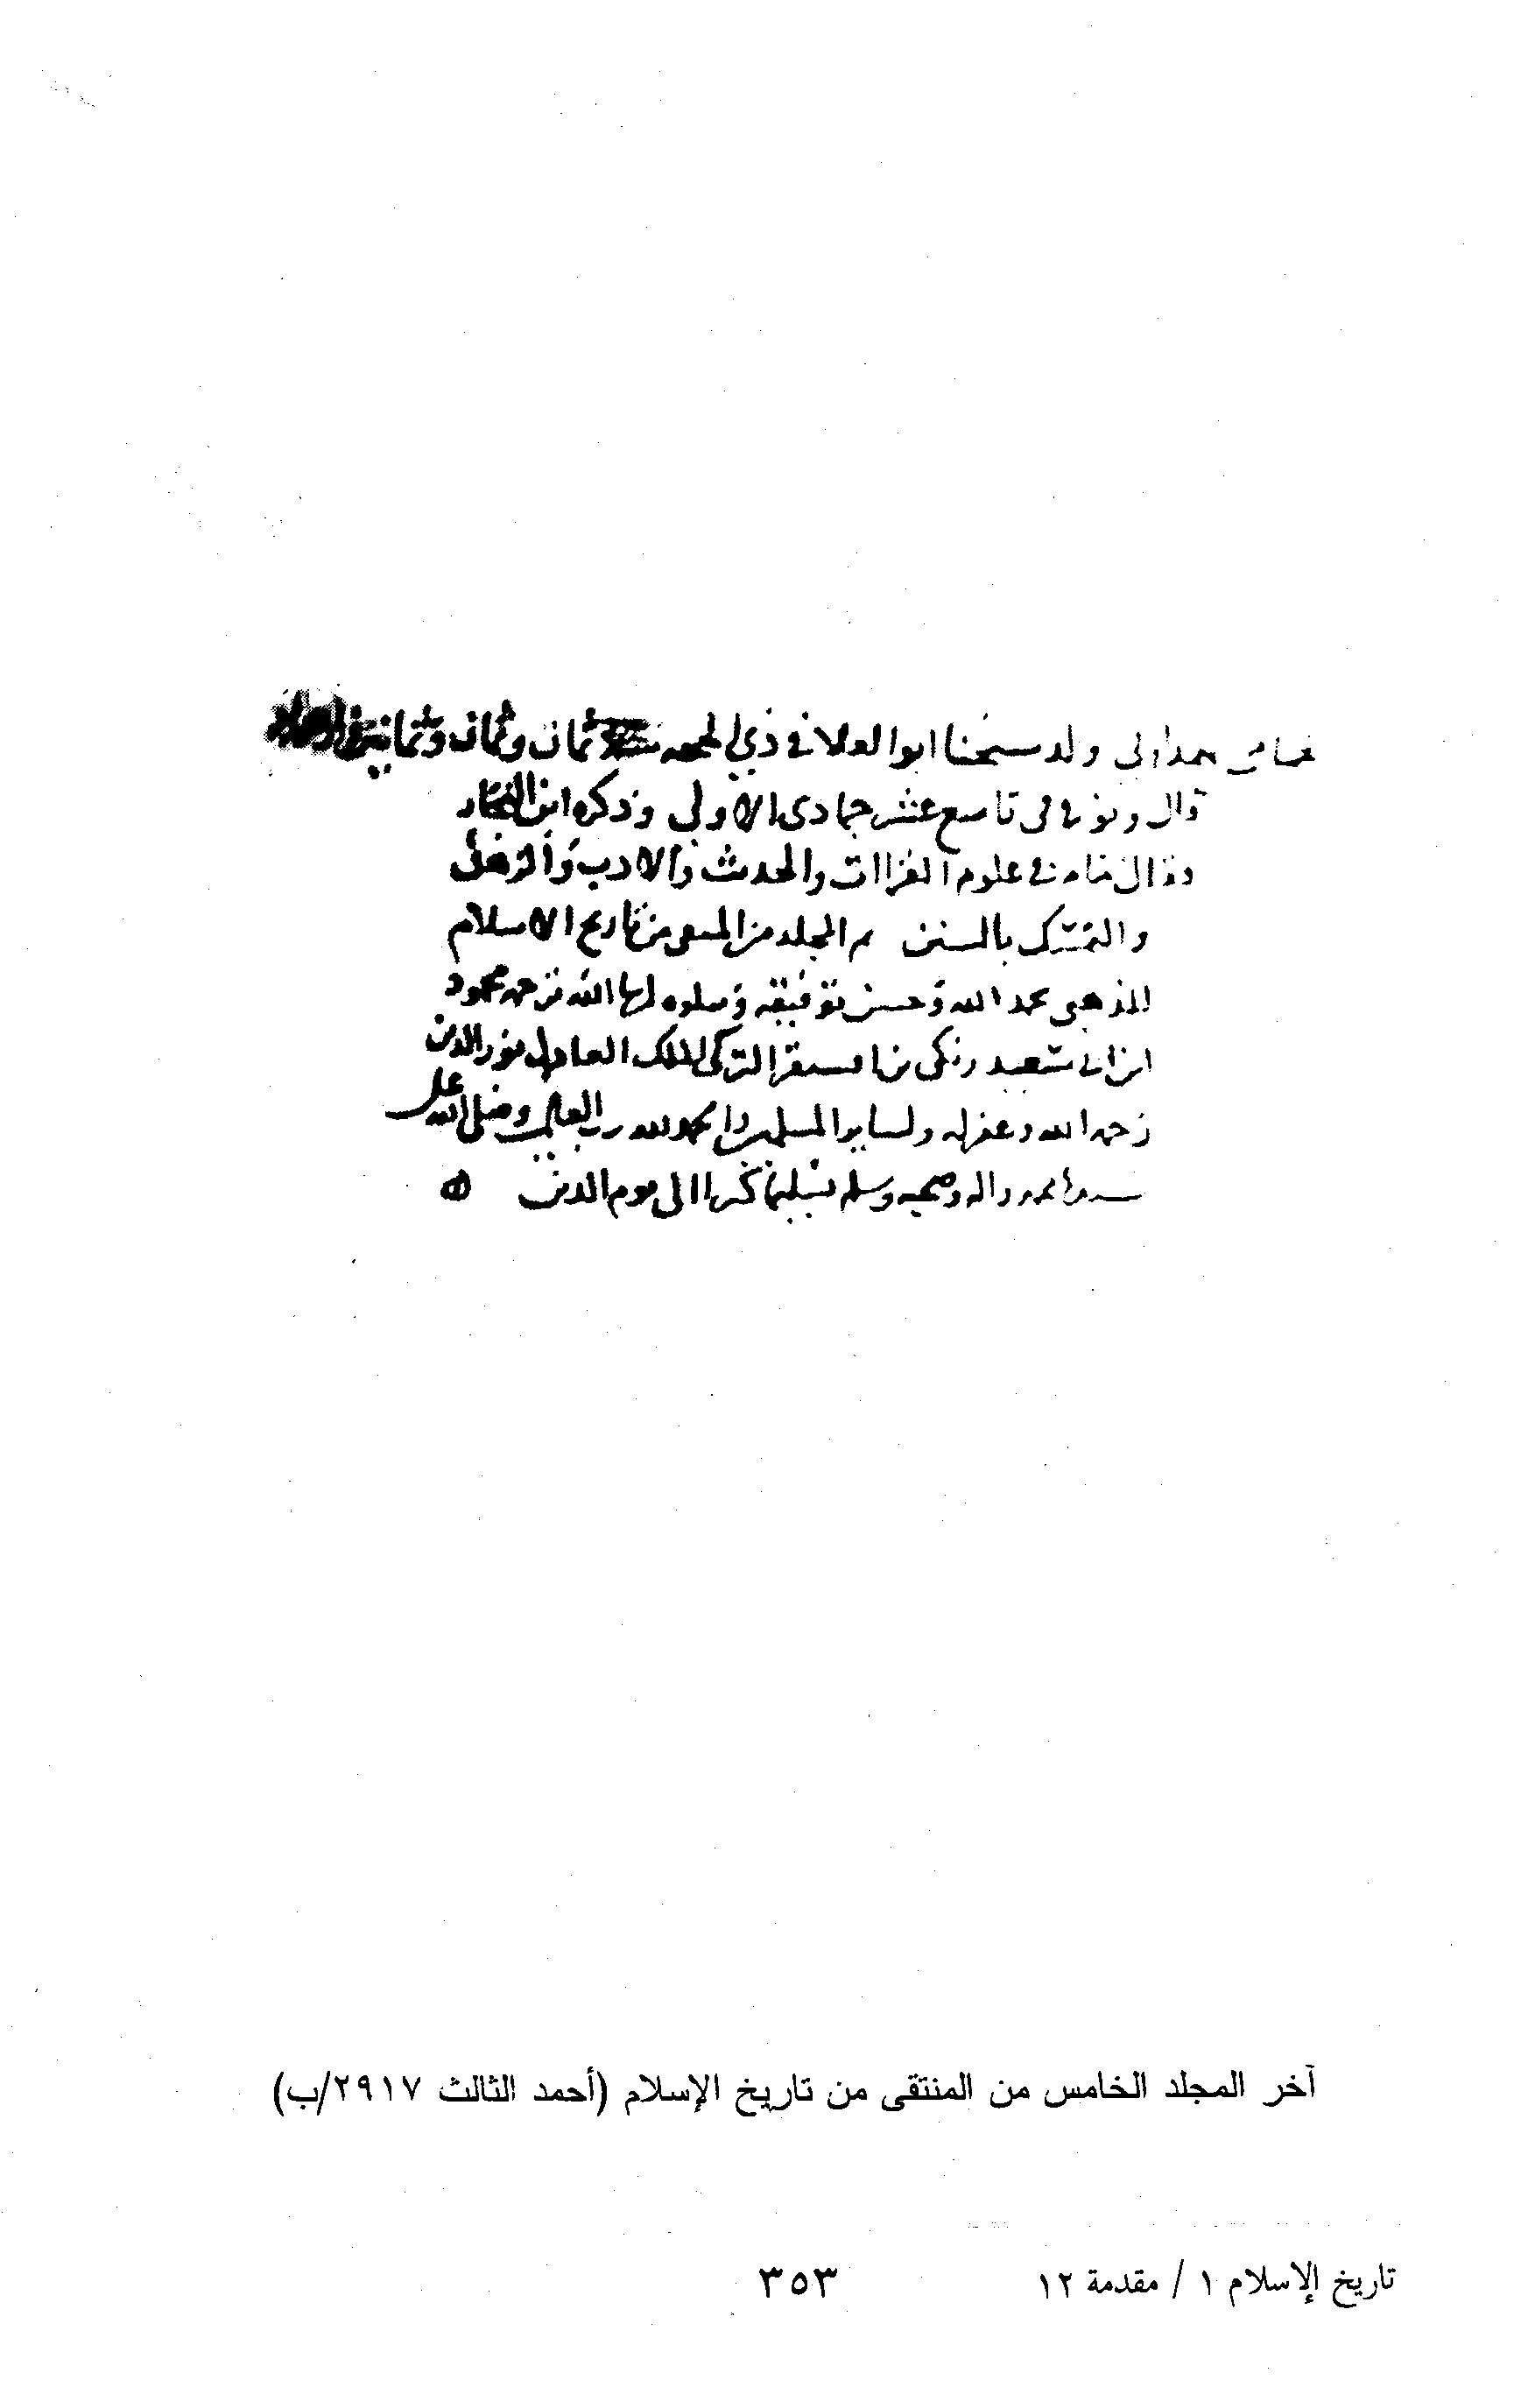 ولد شيخنا ابو العلا في ذي الحجه ثمان وثمانين
قال وتوفي في تاسع عشر جمادى الاولى وذكره ابن النجار
في علوم القراات والحديث والادب والزهد
والتمسك بالسنن تم المجلد من المنتقى من تاريخ الاسلام
للذهبي بحمد الله وحسن توفيقه وتلوه ان شا الله ترجمه محمود
ابن زنكي بن اقسنقر التركي الملك العادل نور الدين
رحمه الله وغفر له ولساير المسلمين والحمد لله رب العالمين وصلى الله على
سيدنا محمد واله وصحبه وسلم تسليما كثيرا الى يوم الدين
آخر المجلد الخامس من المنتقى من تاريخ الإسلام (أحمد الثالث ٢٩١٧/ب)
تاريخ الإسلام ١ / مقدمة ١٢
٣٥٣